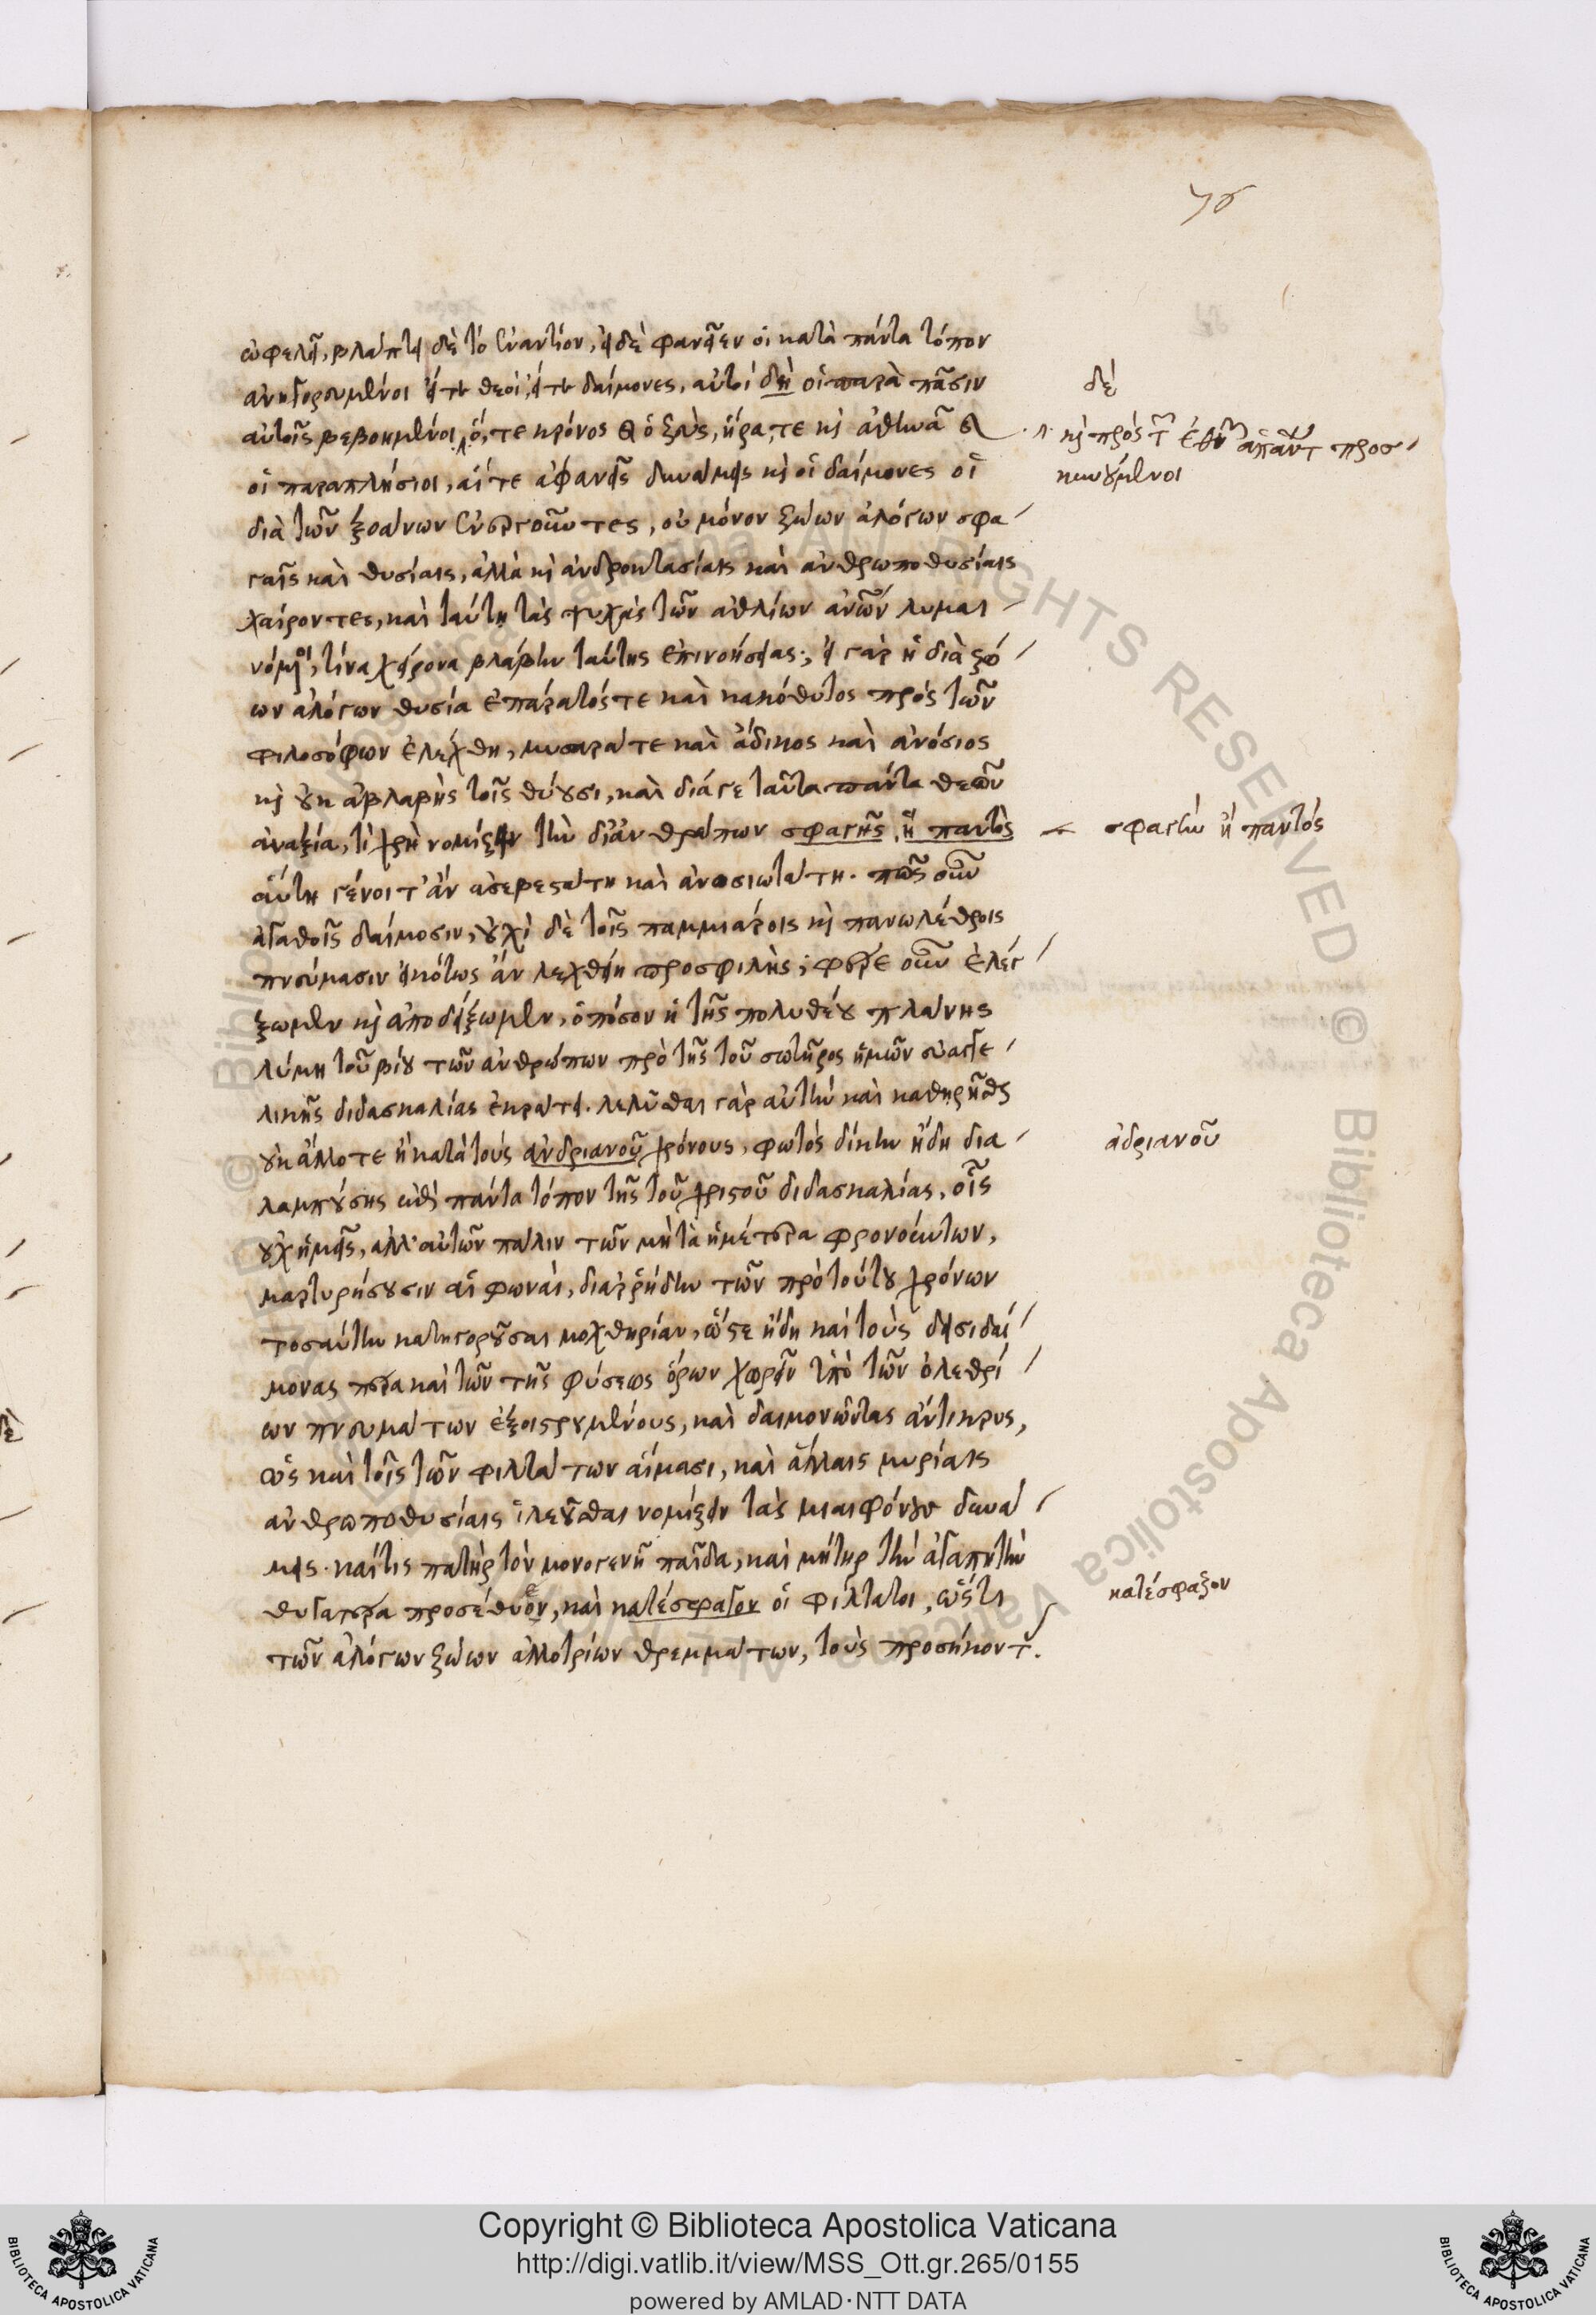 76
ὠφελεῖ, βλάπτει δὲ τὸ ἐναντίον, εἰ δὲ φανεῖεν οἱ κατὰ πάντα τόπον
ἀνηγορευμένοι εἴτε θεοὶ, εἴτε δαίμονες, αὐτοὶ δὴ οἱ παρὰ πᾶσιν
δέ
αὐτοῖς βεβοημένοι, ὅ, τε κρόνος καὶ ὁ ζεὺς, ἥρα, τε καὶ ἀθηνᾶ καὶ
καὶ πρὸς τῶν ἐθνῶν ἁπάντων προσ
κυνούμενοι
οἱ παραπλήσιοι, αἵ τε ἀφανεῖς δυνάμεις καὶ οἱ δαίμονες οἱ
διὰ τῶν ξοάνων ἐνεργοῦντες, οὐ μόνον ζώων ἀλόγων σφα
γαῖς καὶ θυσίαις, ἀλλὰ καὶ ἀνδροκτασίαις καὶ ἀνθρωποθυσίαις
χαίροντες, καὶ ταύτῃ τὰς ψυχὰς τῶν ἀθλίων ἀνῶν λυμαι
νόμενοι, τίνα χείρονα βλάβην ταύτης ἐπινοήσεις; εἰ γὰρ ἡ διὰ ζώ
ων ἀλόγων θυσία ἐπάρατός τε καὶ κακόθυτος πρὸς τῶν
φιλοσόφων ἐλέχθη, μυσαρά τε καὶ ἄδικος καὶ ἀνόσιος
καὶ οὐκ ἀβλαβὴς τοῖς θύουσι, καὶ διά γε ταῦτα πάντα θεῶν
ἀναξία, τί χρὴ νομίζειν τὴν δι' ἀνθρώπων σφαγῆς, ἢ παντὸς
σφαγὴν ἢ παντός
αὕτη γένοιτ' ἂν ἀσεβεστάτη καὶ ἀνοσιωτάτη. πῶς οὖν
ἀγαθοῖς δαίμοσιν, οὐχὶ δὲ τοῖς παμμιάροις καὶ πανωλέθροις
πνεύμασιν εἰκότως ἂν λεχθείη προσφιλὴς; φέρε οὖν ἐλέγ
ξωμεν καὶ ἀποδείξωμεν, ὁπόσον ἡ τῆς πολυθέου πλάνης
λύμη τοῦ βίου τῶν ἀνθρώπων πρὸ τῆς τοῦ σωτῆρος ἡμῶν εὐαγγε
λικῆς διδασκαλίας ἐκράτει. λελύσθαι γὰρ αὐτὴν καὶ καθῃρῆσθαι
οὐκ ἄλλοτε ἢ κατὰ τοὺς ἀνδριανοῦ χρόνους, φωτὸς δίκην ἤδη δια
ἀδριανοῦ
λαμπούσης ἐπὶ πάντα τόπον τῆς τοῦ χριστοῦ διδασκαλίας, οἷς
οὐχ ἡμεῖς, ἀλλ' αὐτῶν πάλιν τῶν μὴ τὰ ἡμέτερα φρονούντων,
μαρτυρήσουσιν αἱ φωναὶ, διαῤῥήδην τῶν πρὸ τούτου χρόνων
τοσαύτην κατηγοροῦσαι μοχθηρίαν, ὥστε ἤδη καὶ τοὺς δεισιδαί
μονας πέρα καὶ τῶν τῆς φύσεως ὅρων χωρεῖν ὑπὸ τῶν ὀλεθρί
ων πνευμάτων ἐξοιστρουμένους, καὶ δαιμονῶντας ἄντικρυς,
ὡς καὶ τοῖς τῶν φιλτάτων αἵμασι, καὶ ἄλλαις μυρίαις
ἀνθρωποθυσίαις ἱλεοῦσθαι νομίζειν τὰς μιαιφόνους δυνά
μεις. καί τις πατὴρ τὸν μονογενῆ παῖδα, καὶ μήτηρ τὴν ἀγαπητὴν
θυγατέρα προσέθυον, καὶ κατέσφαγον οἱ φίλτατοι, ὥς τι
κατέσφαξον
τῶν ἀλόγων ζώων ἀλλοτρίων θρεμμάτων, τοὺς προσήκοντας.
Copyright © Biblioteca Apostolica Vaticana
http://digi.vatlib.it/view/MSS_Ott.gr.265/0155
powered by AMLAD·NTT DATA
BIBLIOTECA APOSTOLICA VATICANA
BIBLIOTECA APOSTOLICA VATICANA